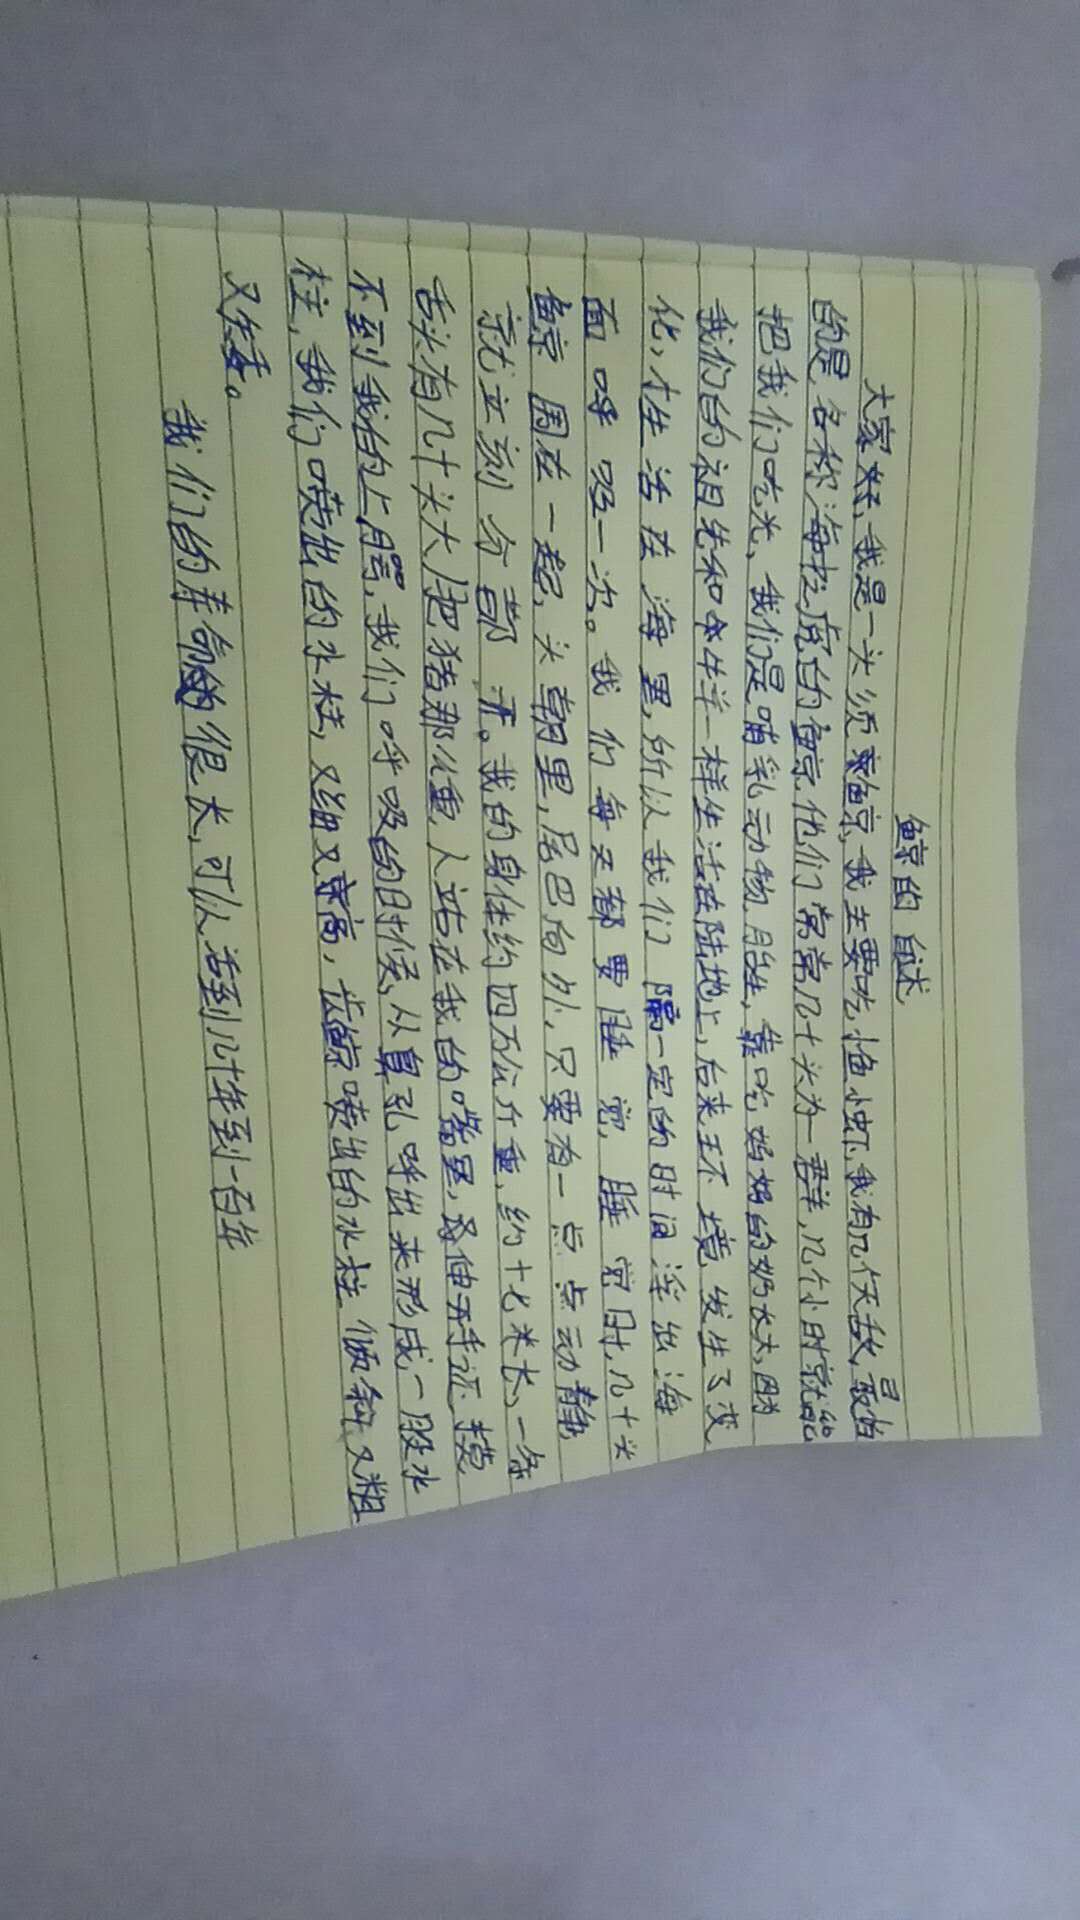 鲸的自述
大家好,我是一头须鲸,我主要吃小鱼小虾,我有几个天敌,最怕
的是名称海中之虎的鲸,他们常常几十头为一群,几个小时就能
把我们吃光,我们是哺乳动物,胎生,靠吃妈妈的奶长大,因为
我们的祖先和牛羊一样生活在陆地上,后来环境发生了变
化,才生活在海里,所以我们隔一定的时间浮出海
面呼吸一次。我们每天都要睡觉,睡觉时,几十头
鲸围在一起,头朝里,尾巴向外,只要有一点点动静
就立刻分部开。我的身体约四万公斤重,约十七米长,一条
舌头有几十头大肥猪那么重,人站在我的嘴里,举手还摸
不到我的上腭,我们呼吸的时候,从鼻孔呼出来形成一股水
柱,我们喷出的水柱,又细又高,齿鲸喷出的水柱倾斜又粗
又矮。
我们的寿命很长,可以活到几十年到一百年